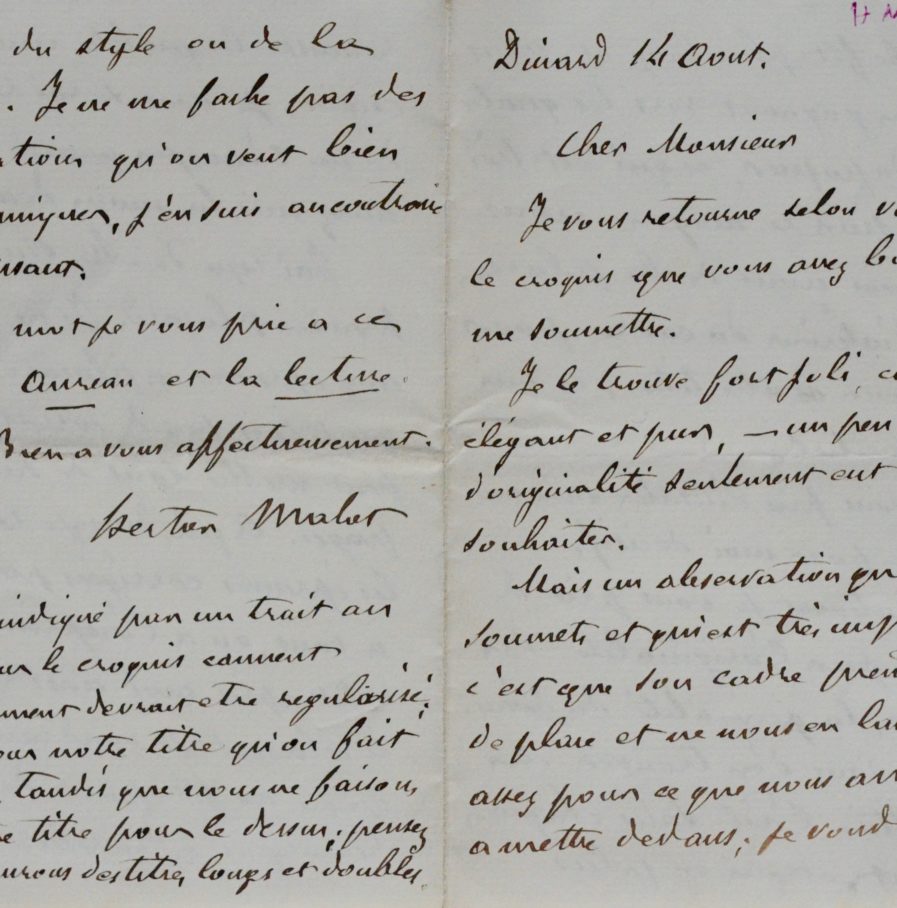 du style ou de la
. Je ne me fache pas des
ations qu'on veut bien
muniquer, j'en suis aucontraire
issant.
mot je vous prie a ce
Aureau et la lecture.
Bien a vous affectueusement.
Hector Malot
indiqué par un trait au
sur le croquis comment
ment devrait etre regularisé;
pour notre titre qu'on fait
, tandis que nous ne faisons
e titre pour le dessin; pensez
aurons des titres longs et doubles.
H M
Dinard 14 Aout.
Cher Monsieur
Je vous retourne selon v
le croquis que vous avez b
me soumettre.
Je le trouve fort joli, c
élégant et pur, — un peu
d'originalité seulement eut
souhaiter.
Mais un observation qu
soumets et qui est très imp
c'est que son cadre pren
de place et ne nous en la
assez pour ce que nous av
a mettre dedans; je voud